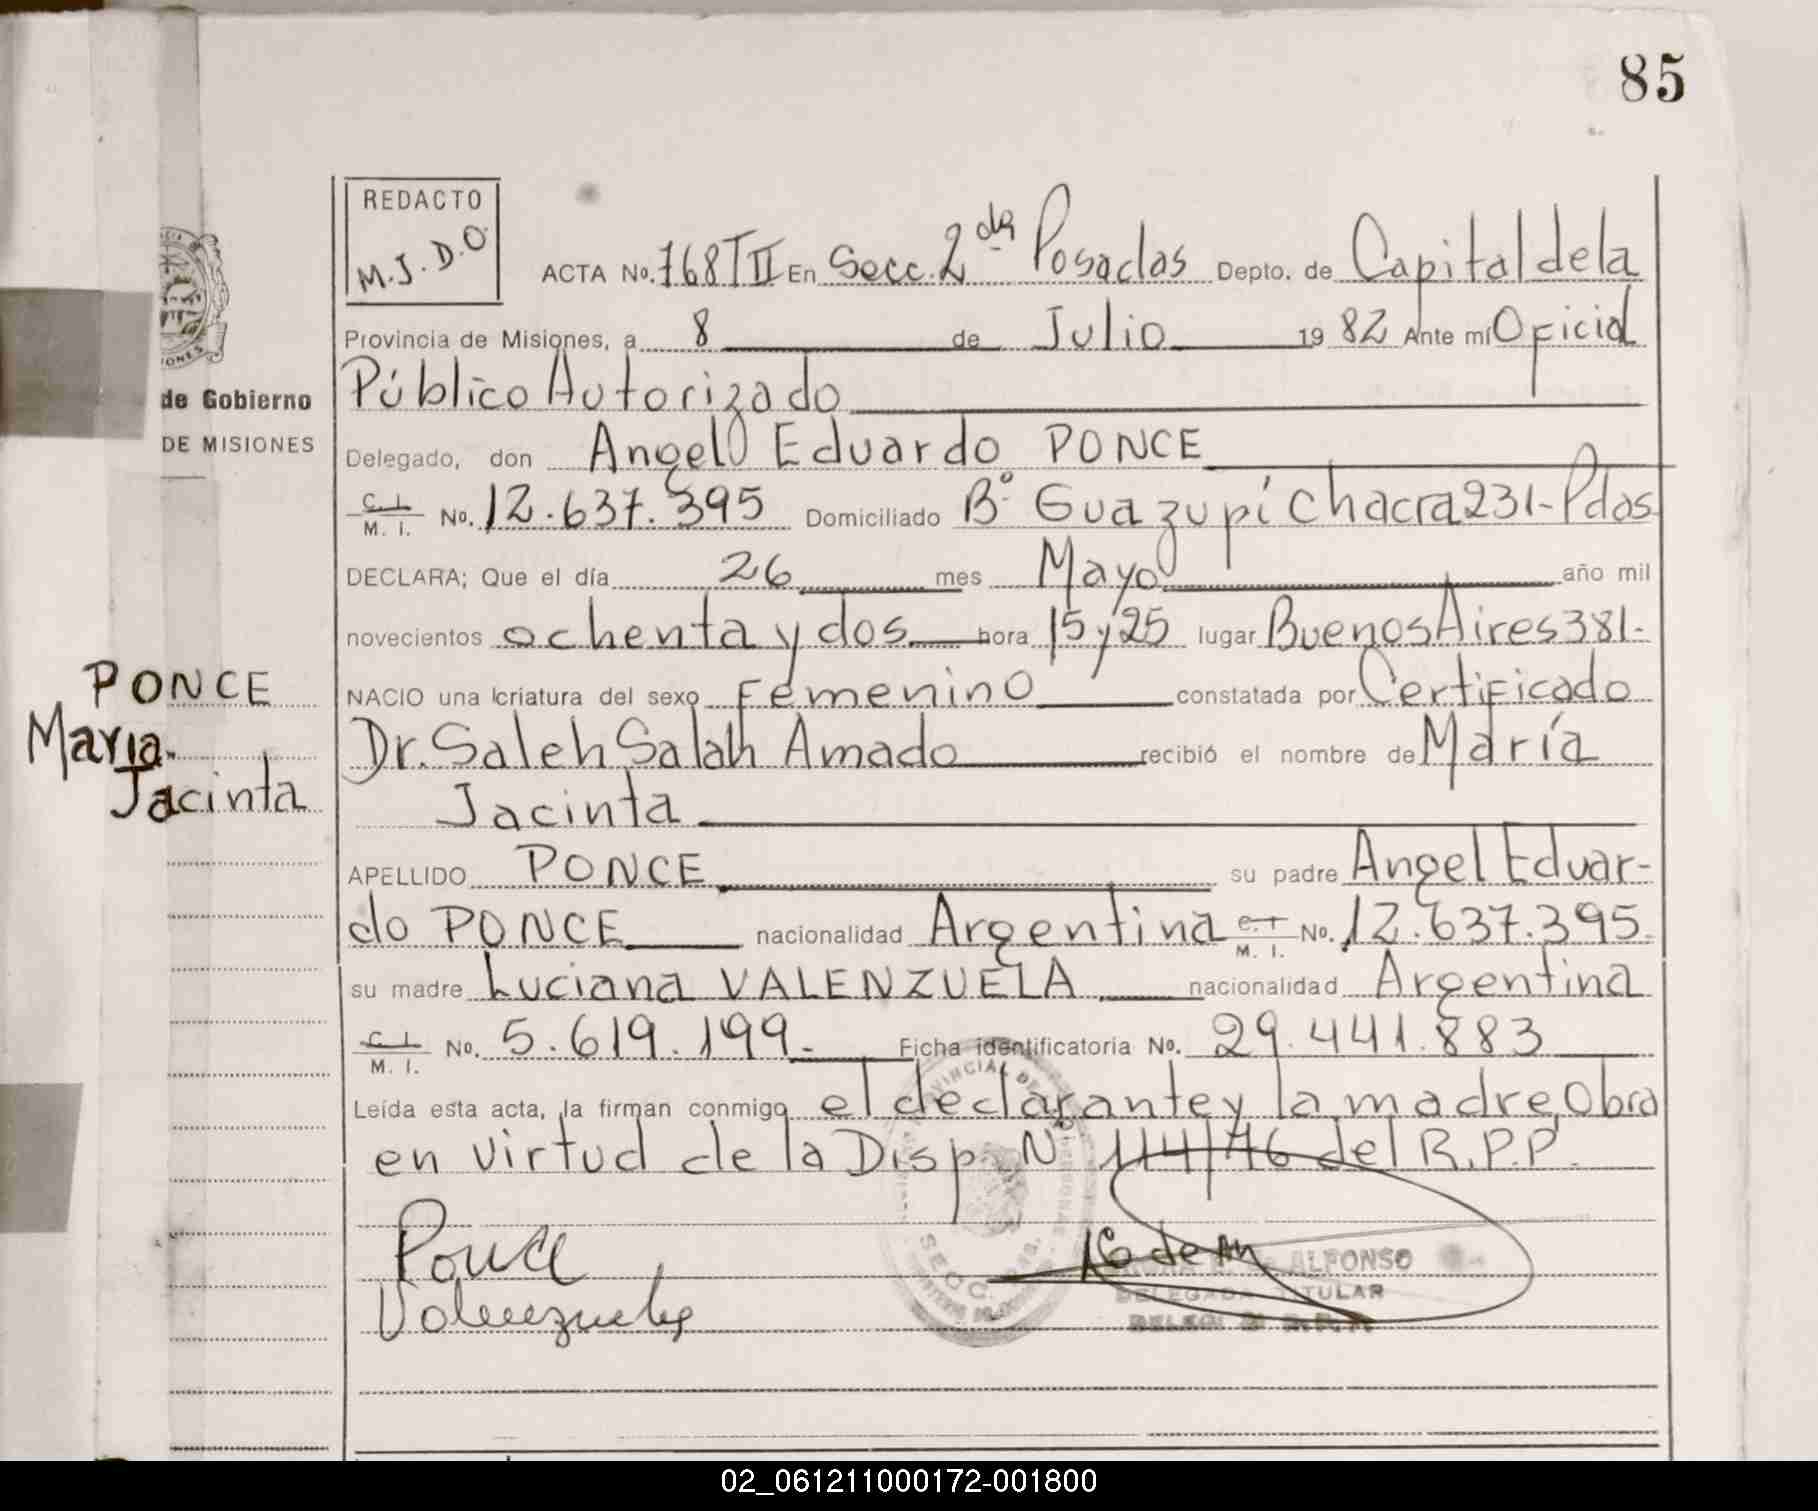 85
REDACTO
M.J.D.O
ACTA No. 768 T II En Secc. 2da Posadas Depto. de Capital de la
Provincia de Misiones, a 8 de Julio 1982 Ante mí Oficial
Público Autorizado
de Gobierno
DE MISIONES
Delegado, don Angel Eduardo PONCE
C. I. / M. I. No. 12.637.395 Domiciliado B° Guazupí Chacra 231-Pdas.
DECLARA; Que el día 26 mes Mayo año mil
novecientos ochenta y dos hora 15 y 25 lugar Buenos Aires 381-
NACIO una criatura del sexo Femenino constatada por Certificado
PONCE
Maria
Jacinta
Dr. Saleh Salah Amado recibió el nombre de María
Jacinta
APELLIDO PONCE su padre Angel Eduar-
do PONCE nacionalidad Argentina C. I. / M. I. No. 12.637.395.
su madre Luciana VALENZUELA nacionalidad Argentina
C. I. / M. I. No. 5.619.199.- Ficha identificatoria No. 29.441.883
Leída esta acta, la firman conmigo el declarante y la madre, Obra
en virtud de la Disp. N° 114/76 del R.P.P.
Ponce
Valenzuela
ALFONSO
DELEGADA TITULAR
SECC.
02_061211000172-001800